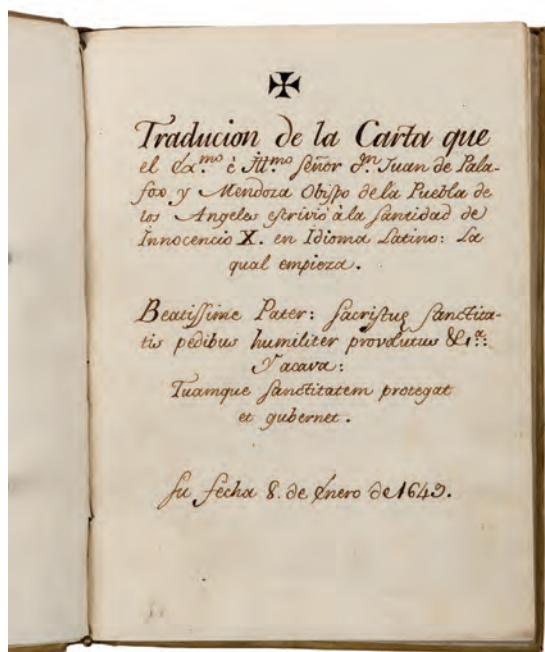 ✠
Traducion de la Carta que
el Ex.mo è Ill.mo señor D.n Juan de Pala-
fox y Mendoza Obispo de la Puebla de
los Angeles escrivió à la santidad de
Innocencio X. en Idioma Latino: La
qual empieza.
Beatissime Pater: sacrisque sanctita-
tis pedibus humiliter provolutus &.ª:
Y acava:
Tuamque sanctitatem protegat
et gubernet.
su fecha 8. de Enero de 1649.